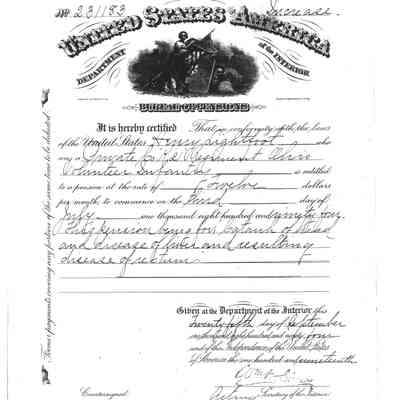 No 231183 Increase.
UNITED STATES OF AMERICA
DEPARTMENT of the INTERIOR
BUREAU OF PENSIONS
It is hereby certified That in conformity with the laws
of the United States Henry Lightfoot who
was a Private Co. Regiment Ohio
Volunteer Infantry is entitled
to a pension at the rate of Twelve dollars
per month, to commence on the Third day of
July one thousand eight hundred and ninety four.
This pension being for Catarrh of Head
and disease of liver and resulting
disease of rectum.
Given at the Department of the Interior this
twenty fifth day of September
one thousand eight hundred and ninety four
and of the Independence of the United States
of America the one hundred and nineteenth
Secretary of the Interior.
Countersigned
Former payments covering any portion of the same time to be deducted.